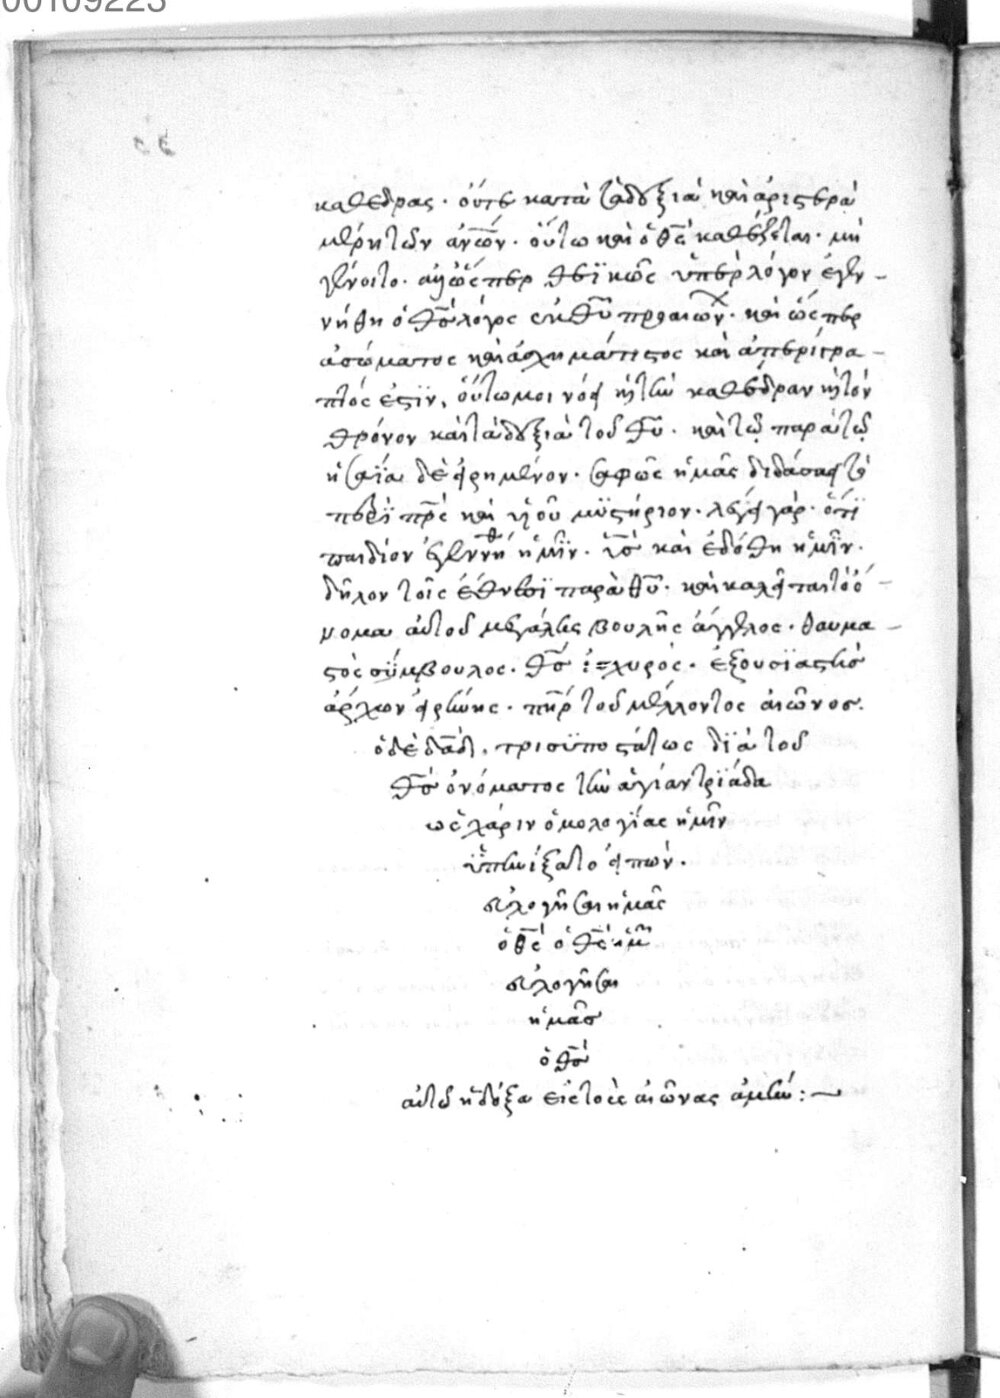 00109223
καθέδρας. οὔτε κατὰ τὰ δεξιὰ καὶ ἀριστερὰ
μέρη τῶν ἀν̅ω̅ν. οὕτω καὶ ὁ θ̅ς̅ καθέζεται. μὴ
γένοιτο. ἀλλ' ὥσπερ θεϊκῶς ὑπὲρ λόγον ἐγεν-
νήθη ὁ θ̅ς̅ λόγος ἐκ θ̅υ̅ πρὸ αἰώνων. καὶ ὥσπερ
ἀσώματος καὶ ἀσχημάτιστος καὶ ἀπερίγρα-
πτός ἐστϊν, οὕτω μοι νόει κ(αὶ) τὴν καθέδραν κ(αὶ) τὸν
θρόνον καὶ τὰ δεξιὰ τοῦ θ̅υ̅. καὶ τῷ παρὰ τῷ
ἡσαΐα δὲ εἰρημένον. σαφῶς ἡμᾶς διδάσκει τὸ
περὶ π̅ρ̅ς̅ καὶ υἱοῦ μϋστήριον. λέγει γάρ. ὅτϊ
παιδίον ἐγεννήθ(η) ἡμῖν. υ̅ς̅ καὶ ἐδόθη ἡμῖν.
δῆλον τοῖς ἔθνεσϊ παρὰ θ̅υ̅. καὶ καλεῖται τὸ ὄ-
νομα αὐτοῦ μεγάλης βουλῆς ἄγγελος. θαυμα-
στὸς σύμβουλος. θ̅ς̅ ἰσχυρὸς. ἐξουσϊαστὴς
ἄρχων εἰρήνης. π̅η̅ρ̅ τοῦ μέλλοντος αἰῶνος.
ὁ δὲ δ̅α̅δ̅, τρισϋποστάτως δϊὰ τοῦ
θ̅υ̅ ὀνόματος τὴν ἁγίαν τρϊάδα
ὡς χάριν ὁμολογίας ἡμῖν
ὑπῃνίξατο εἰπών.
εὐλογῆσαι ἡμᾶς
ὁ θ̅ς̅ ὁ θ̅ς̅ ἡμῶ(ν)
εὐλογῆσαι
ἡμᾶς
ὁ θ̅ς̅
αὐτῷ ἡ δόξα εἰς τοὺς αἰῶνας ἀμήν:—